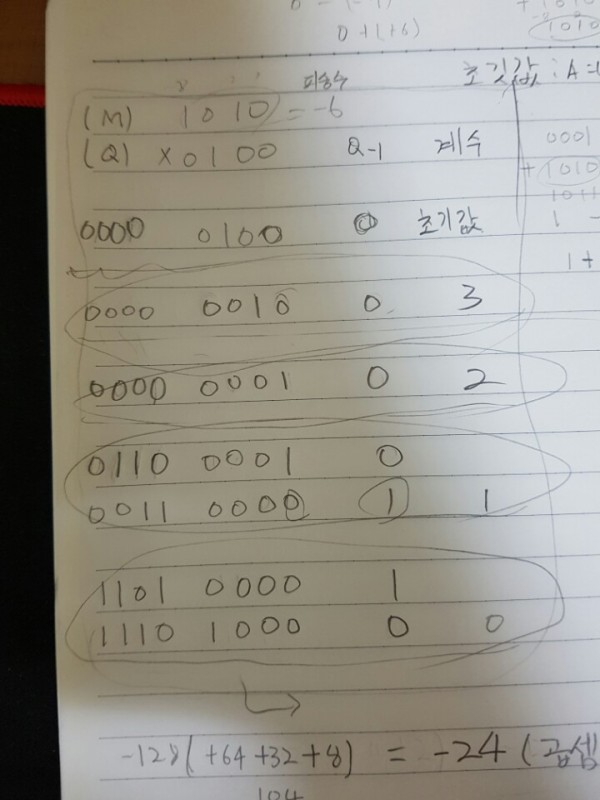 0+(+6)
1010
피승수 초깃값: A=
(M) 1010 = -6
(Q) ×0100 Q-1 계수
0001
+1010
1011
0000 0100 0 초기값
1 -
1+
0000 0010 0 3
0000 0001 0 2
0110 0001 0
0011 0000 1 1
1101 0000 1
1110 1000 0 0
-128(+64+32+8) = -24 (곱셈
104